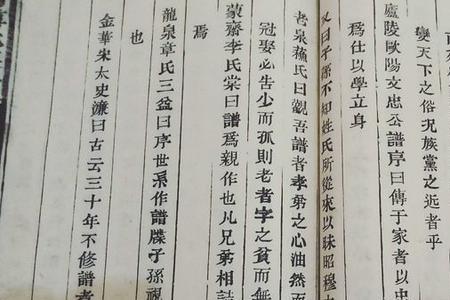 變天下之俗況族黨之近者乎
廬陵歐陽文忠公譜序曰傳于家者以忠
爲仕以學立身
又曰子孫不知姓氏所從來以昧昭穆
老泉蘇氏曰觀吾譜者孝弟之心油然而
冠娶必告少而孤則老者字之貧而無
蒙齋李氏棠曰譜爲親作也凡兄弟相
焉
龍泉章氏三益曰序世系作譜牒子孫視
也
金華宋太史濂曰古云三十年不修譜者